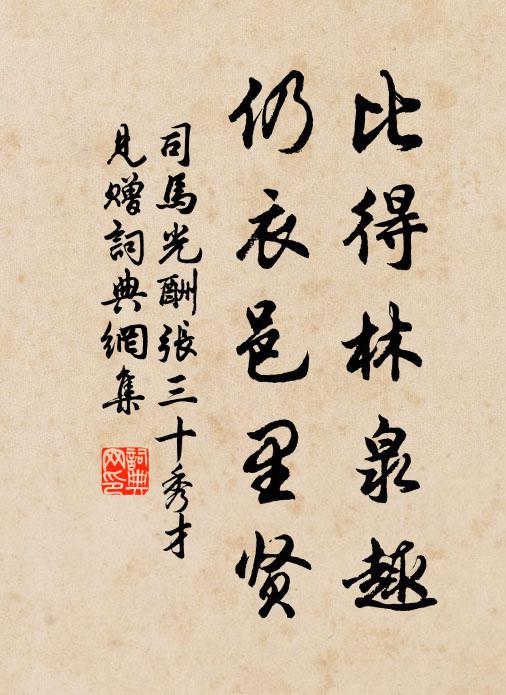 比得林泉趣
仍衣邑里贤
司馬光酬張三十秀才
見贈詞典網集
詞典
网印